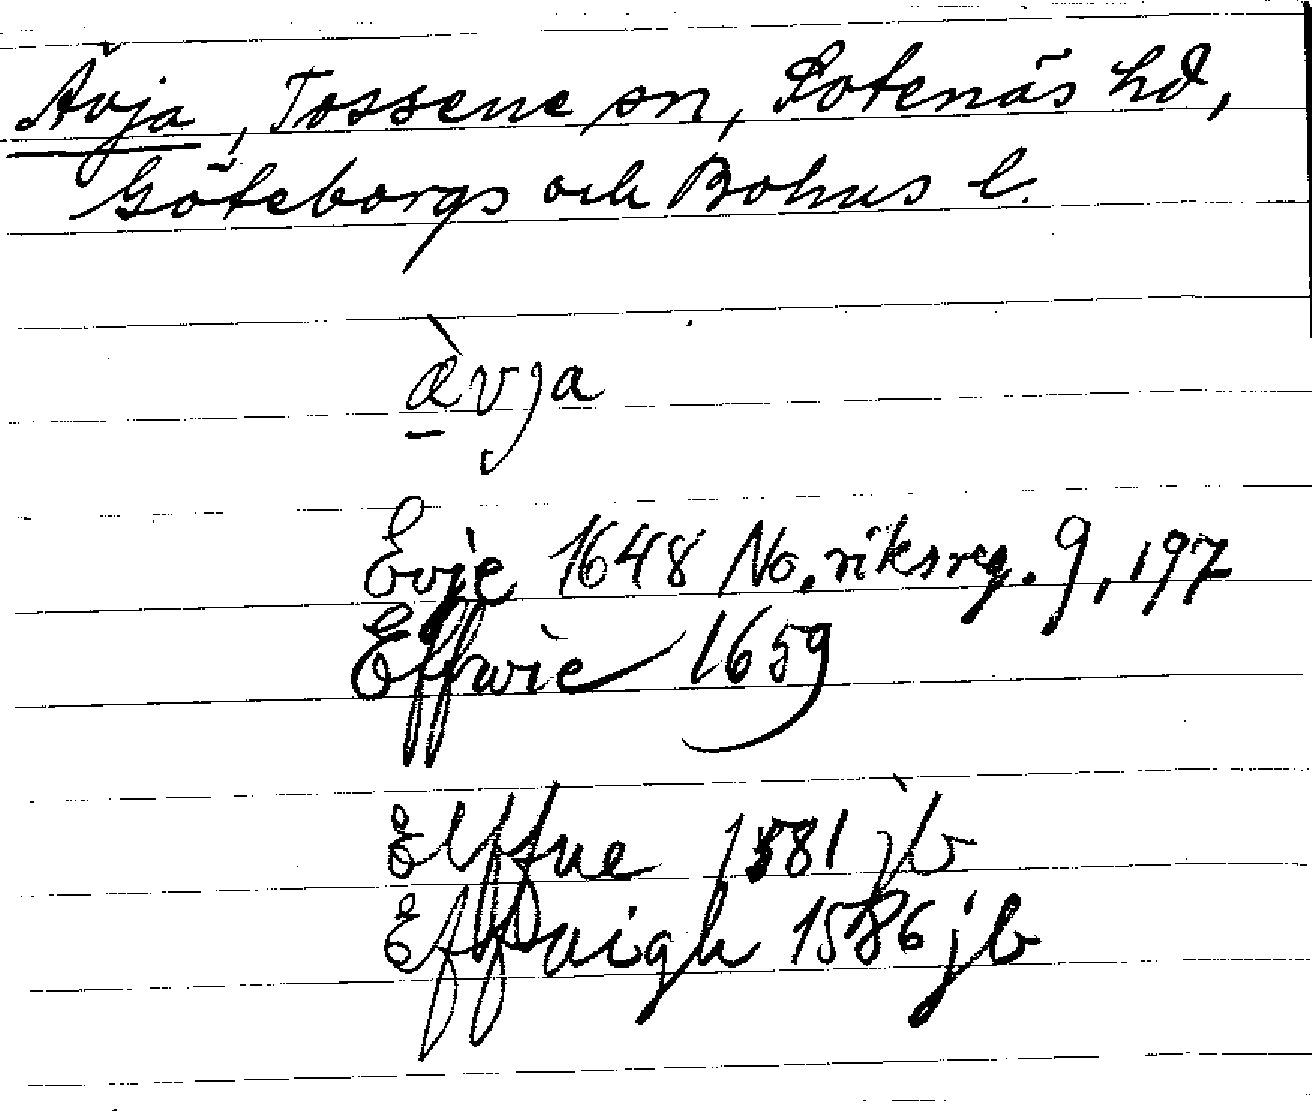 Ävja, Tossene sn, Sotenäs hd,
Göteborgs och Bohus l.
æ̀vja
Evje 1648 No. riksreg. 9, 197
Effwie 1659
Elffue 1581 jb
Effuigh 1586 jb